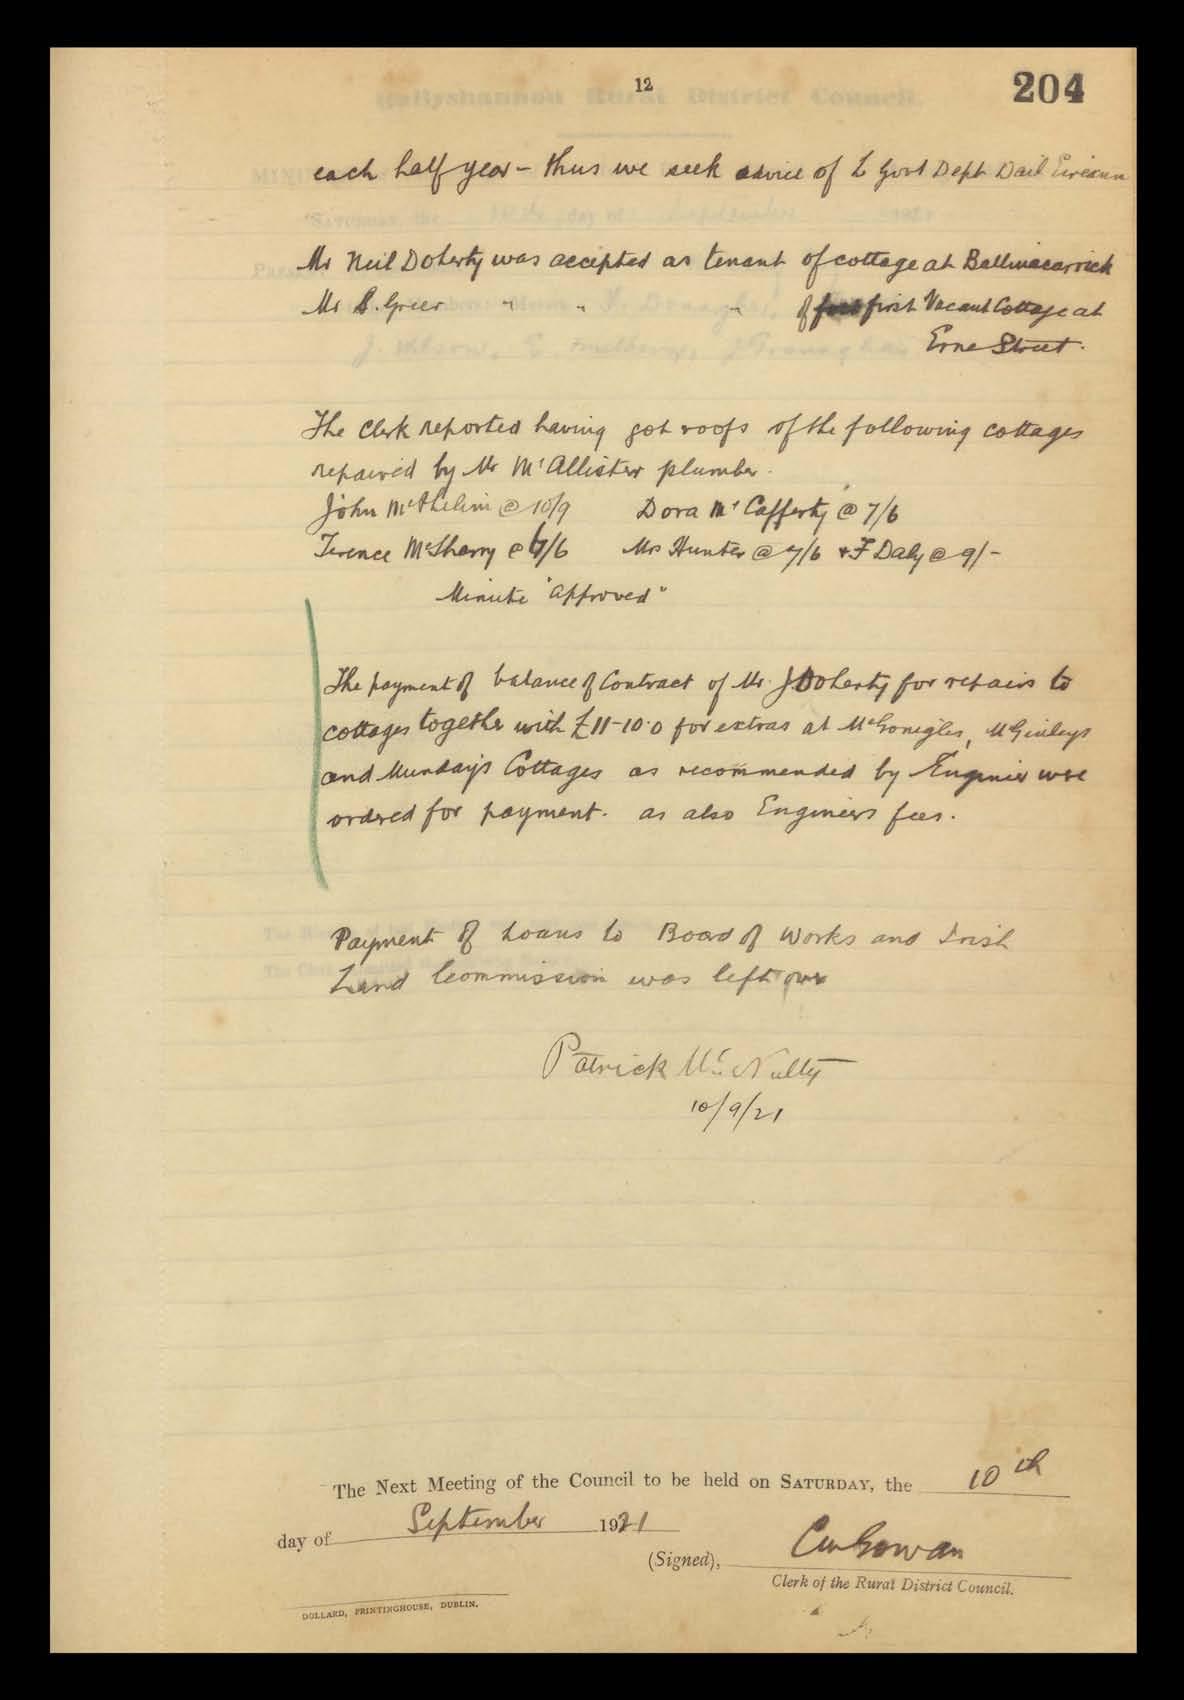 12
204
each half year – thus we seek advice of L Govt Dept Dail Eireann
Mr Neil Doherty was accepted as tenant of cottage at Ballinacarrick
Mr B. Greer " " " of first Vacant Cottage at
Erne Street.
The Clerk reported having got roofs of the following cottages
repaired by Mr McAllister plumber.
John McPhelim @ 10/9 Dora McCafferty @ 7/6
Terence McSharry @ 7/6 Mrs Hunter @ 7/6 & F Daly @ 9/-
Minute "approved"
The payment of balance of Contract of Mr. J Doherty for repairs to
cottages together with £11-10.0 for extras at McGonigles, McGinleys
and Mundays Cottages as recommended by Engineer were
ordered for payment. as also Engineers fees.
Payment of Loans to Board of Works and Irish
Land Commission was left over
Patrick McNulty
10/9/21
The Next Meeting of the Council to be held on SATURDAY, the 10th
day of September 1921
(Signed),
Clerk of the Rural District Council.
DOLLARD, PRINTINGHOUSE, DUBLIN.